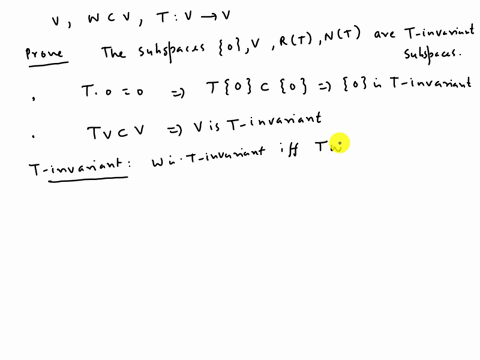 V, W ⊂ V, T : V → V
Prove The subspaces {0}, V, R(T), N(T) are T-invariant subspaces.
. T·0 = 0 ⇒ T{0} ⊂ {0} ⇒ {0} is T-invariant
. TV ⊂ V ⇒ V is T-invariant
T-invariant: W is T-invariant iff TW